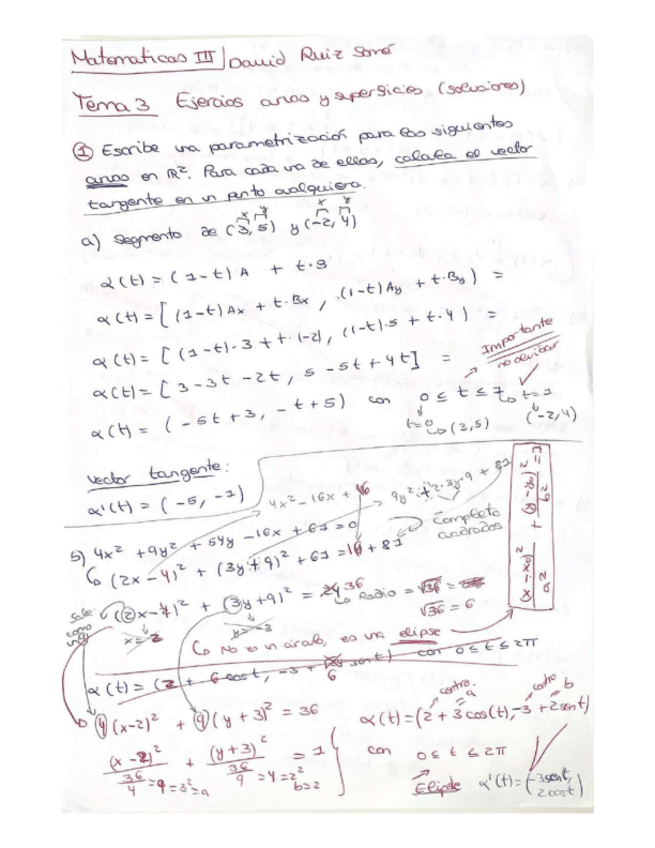 Matematicas III | David Ruiz
Tema 3 Ejercios curvas y superficies (soluciones)
① Escribe una parametrización para las siguientes
curvas en R². Para cada una de ellas, calcula el vector
tangente en un punto cualquiera.
x y x y
a) Segmento de (3, 5) y (-2, 4)
α(t) = (1-t) A + t·B
α(t) = [(1-t)Ax + t·Bx, (1-t)Ay + t·By] =
α(t) = [(1-t)·3 + t·(-2), (1-t)·5 + t·4] =
α(t) = [3-3t-2t, 5-5t+4t] =
Importante
no olvidar
α(t) = (-5t+3, -t+5) con 0 ≤ t ≤ 1 t=1
t=0 (3,5) (-2,4)
vector tangente:
α'(t) = (-5, -1)
4x²-16x+16 9y²+2·3y·9+81
5) 4x² + 9y² + 54y - 16x + 61 = 0
Completo
cuadrados
(2x-4)² + (3y+9)² + 61 = 16 + 81
(2x-4)² + (3y+9)² = 36
Radio = √36 =
√36 = 6
sale
como
x = 2 y = -3
No es un círculo, es una elipse
1 = (x-x₀)²/a² + (y-y₀)²/b²
α(t) = (2 + 6cost, -3 + 6 sent) con 0 ≤ t ≤ 2π
4(x-2)² + 9(y+3)² = 36
centro. a centro. b
α(t) = (2 + 3cos(t), -3 + 2sent)
(x-2)²/(36/4) + (y+3)²/(36/9) = 1
36/4 = 9 = 3² = a 36/9 = 4 = 2² b=2
con 0 ≤ t ≤ 2π
Elipse α'(t) = (-3sent, 2cost)